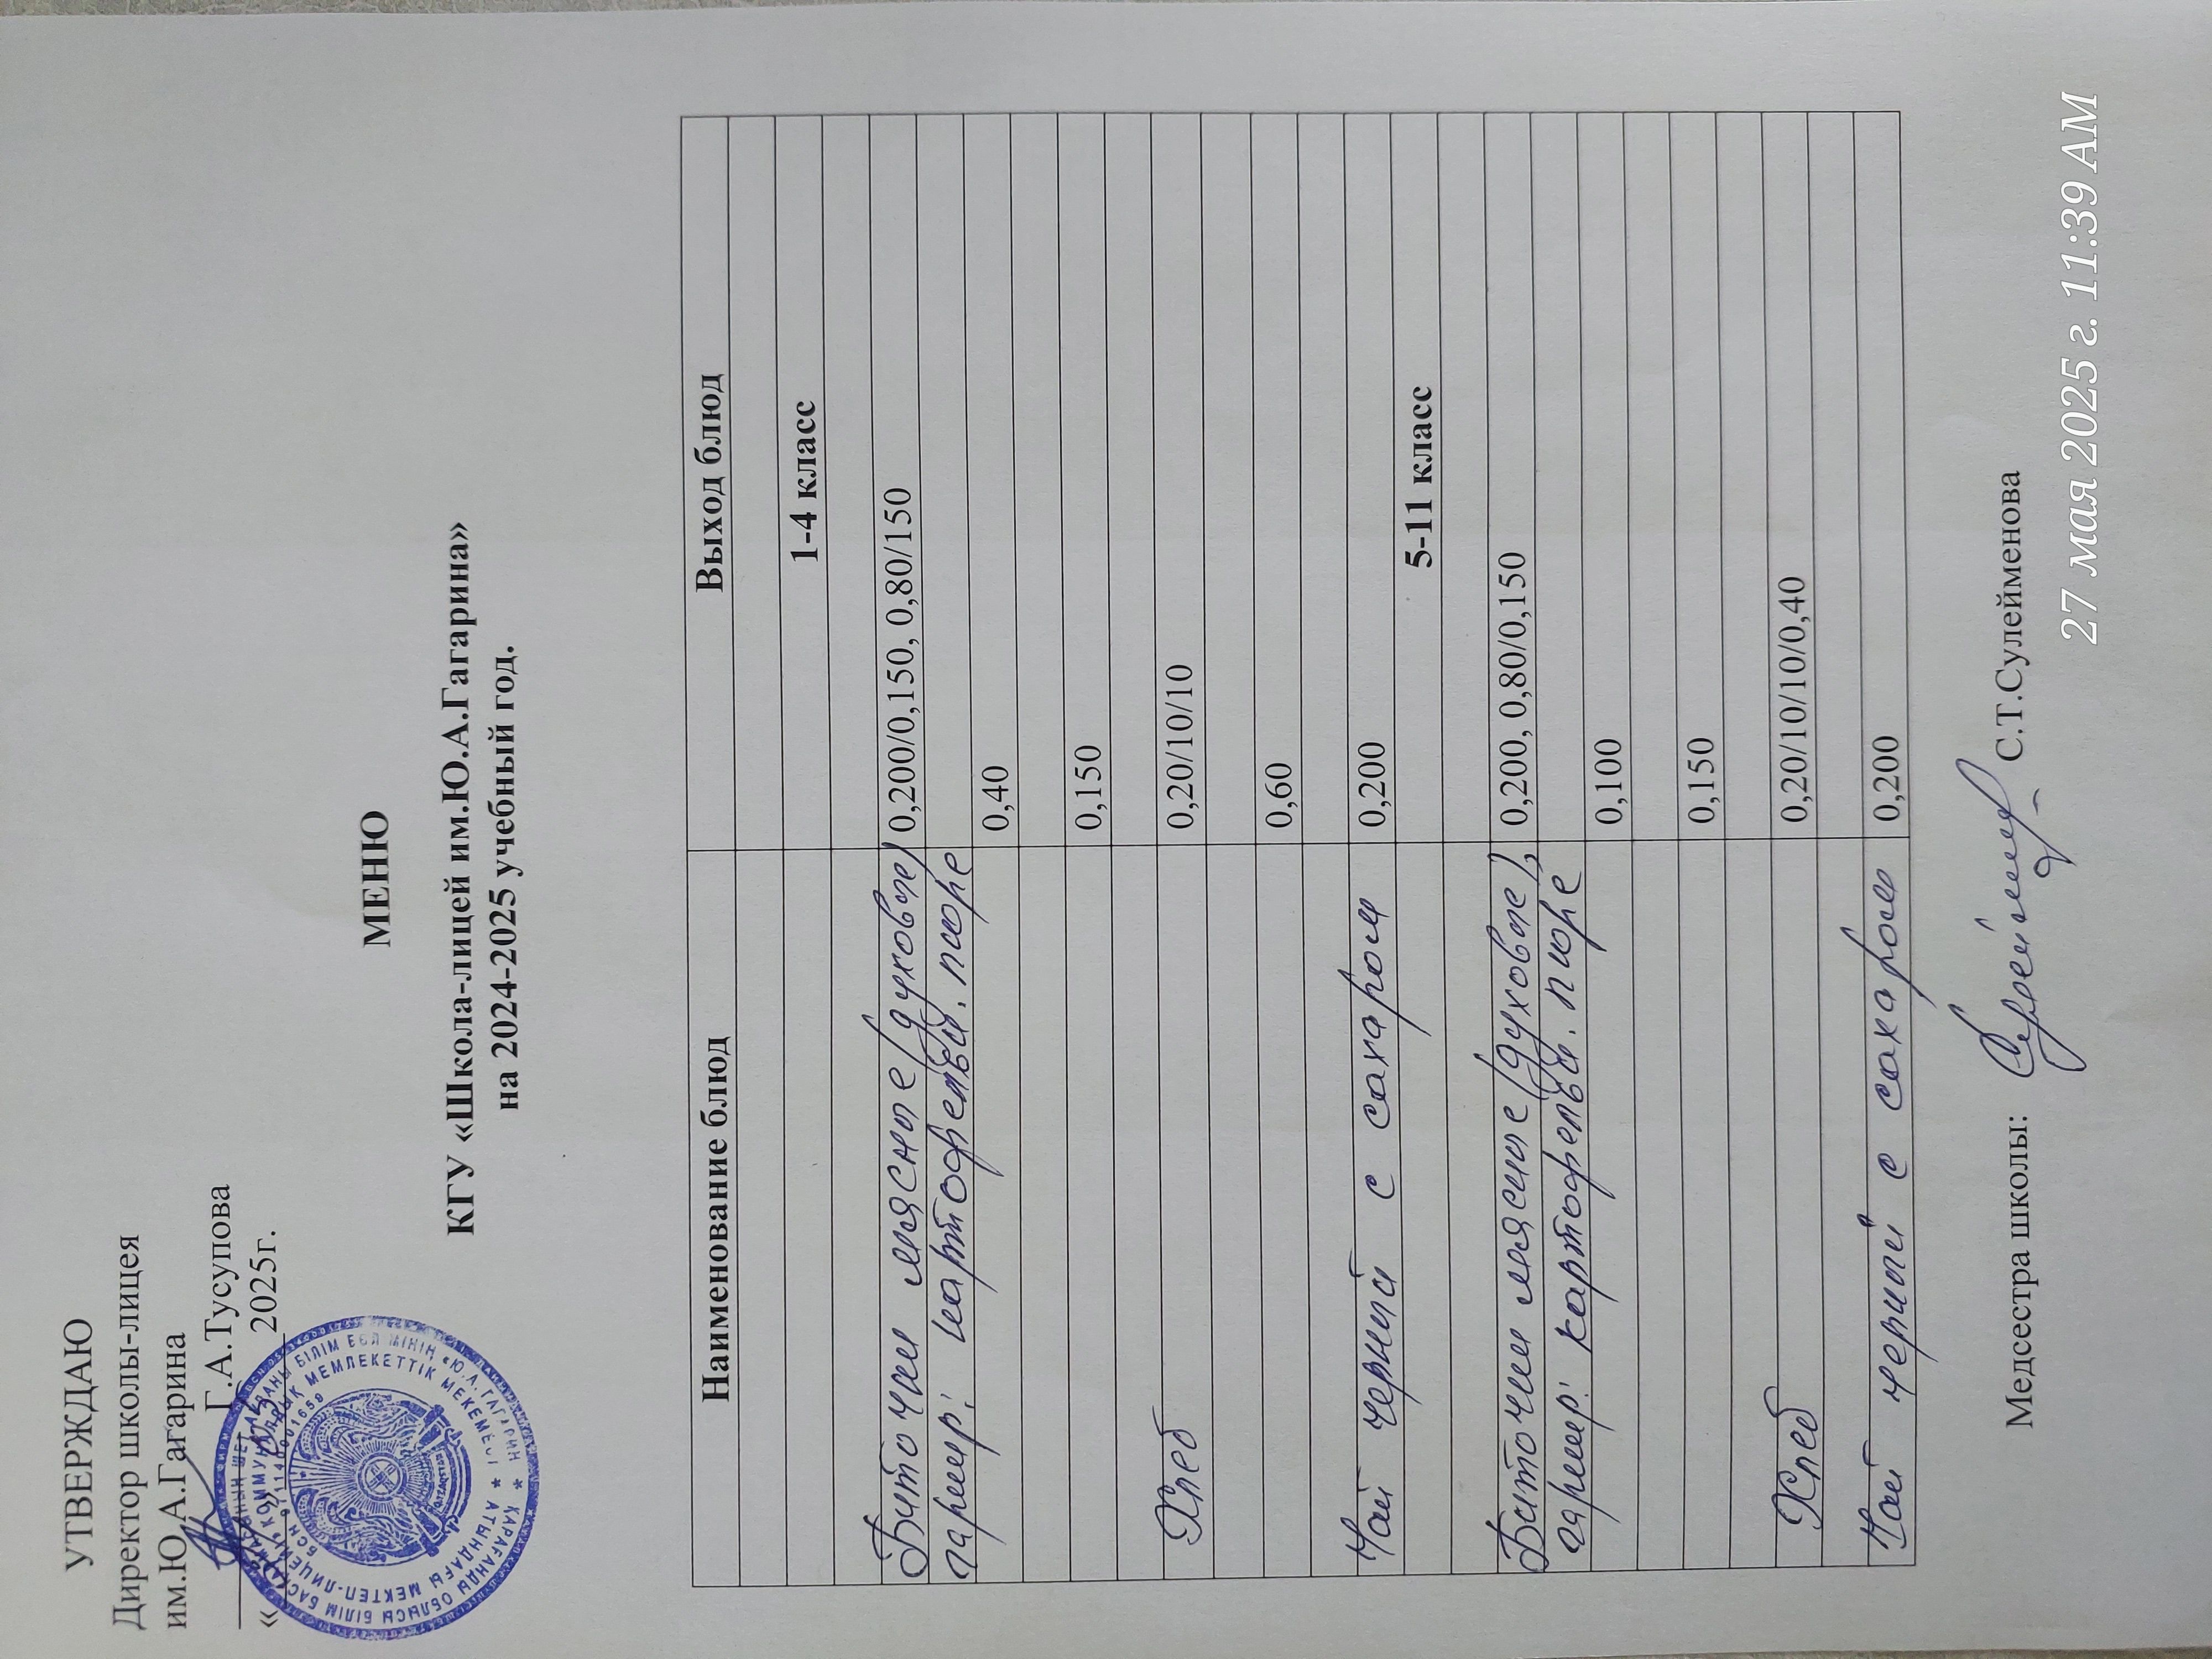 УТВЕРЖДАЮ
Директор школы-лицея
им.Ю.А.Гагарина
Г.А.Тусупова
« » 2025г.
МЕНЮ
КГУ «Школа-лицей им.Ю.А.Гагарина»
на 2024-2025 учебный год.
Наименование блюд Выход блюд
1-4 класс
Биточки мясные (духовые) 0,200/0,150, 0,80/150
гарнир: картофельн. пюре
0,40
0,150
Хлеб 0,20/10/10
0,60
Чай черный с сахаром 0,200
5-11 класс
Биточки мясные (духовые), 0,200, 0,80/0,150
гарнир: картофельн. пюре
0,100
0,150
Хлеб 0,20/10/10/0,40
Чай черный с сахаром 0,200
Медсестра школы: С.Т.Сулейменова
27 мая 2025 г. 11:39 AM